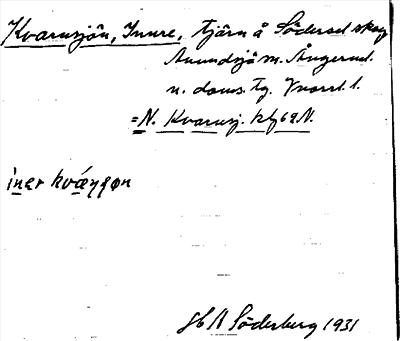 Kvarnsjön, Inure, tjärn å Södersel skog
Anundsjö sn. Ångerml.
n. doms. tg. Vnorrl. l.
= N. Kvarnsj. kbf 69 N.
ìner kvǽɳʂøn
H Söderberg 1931